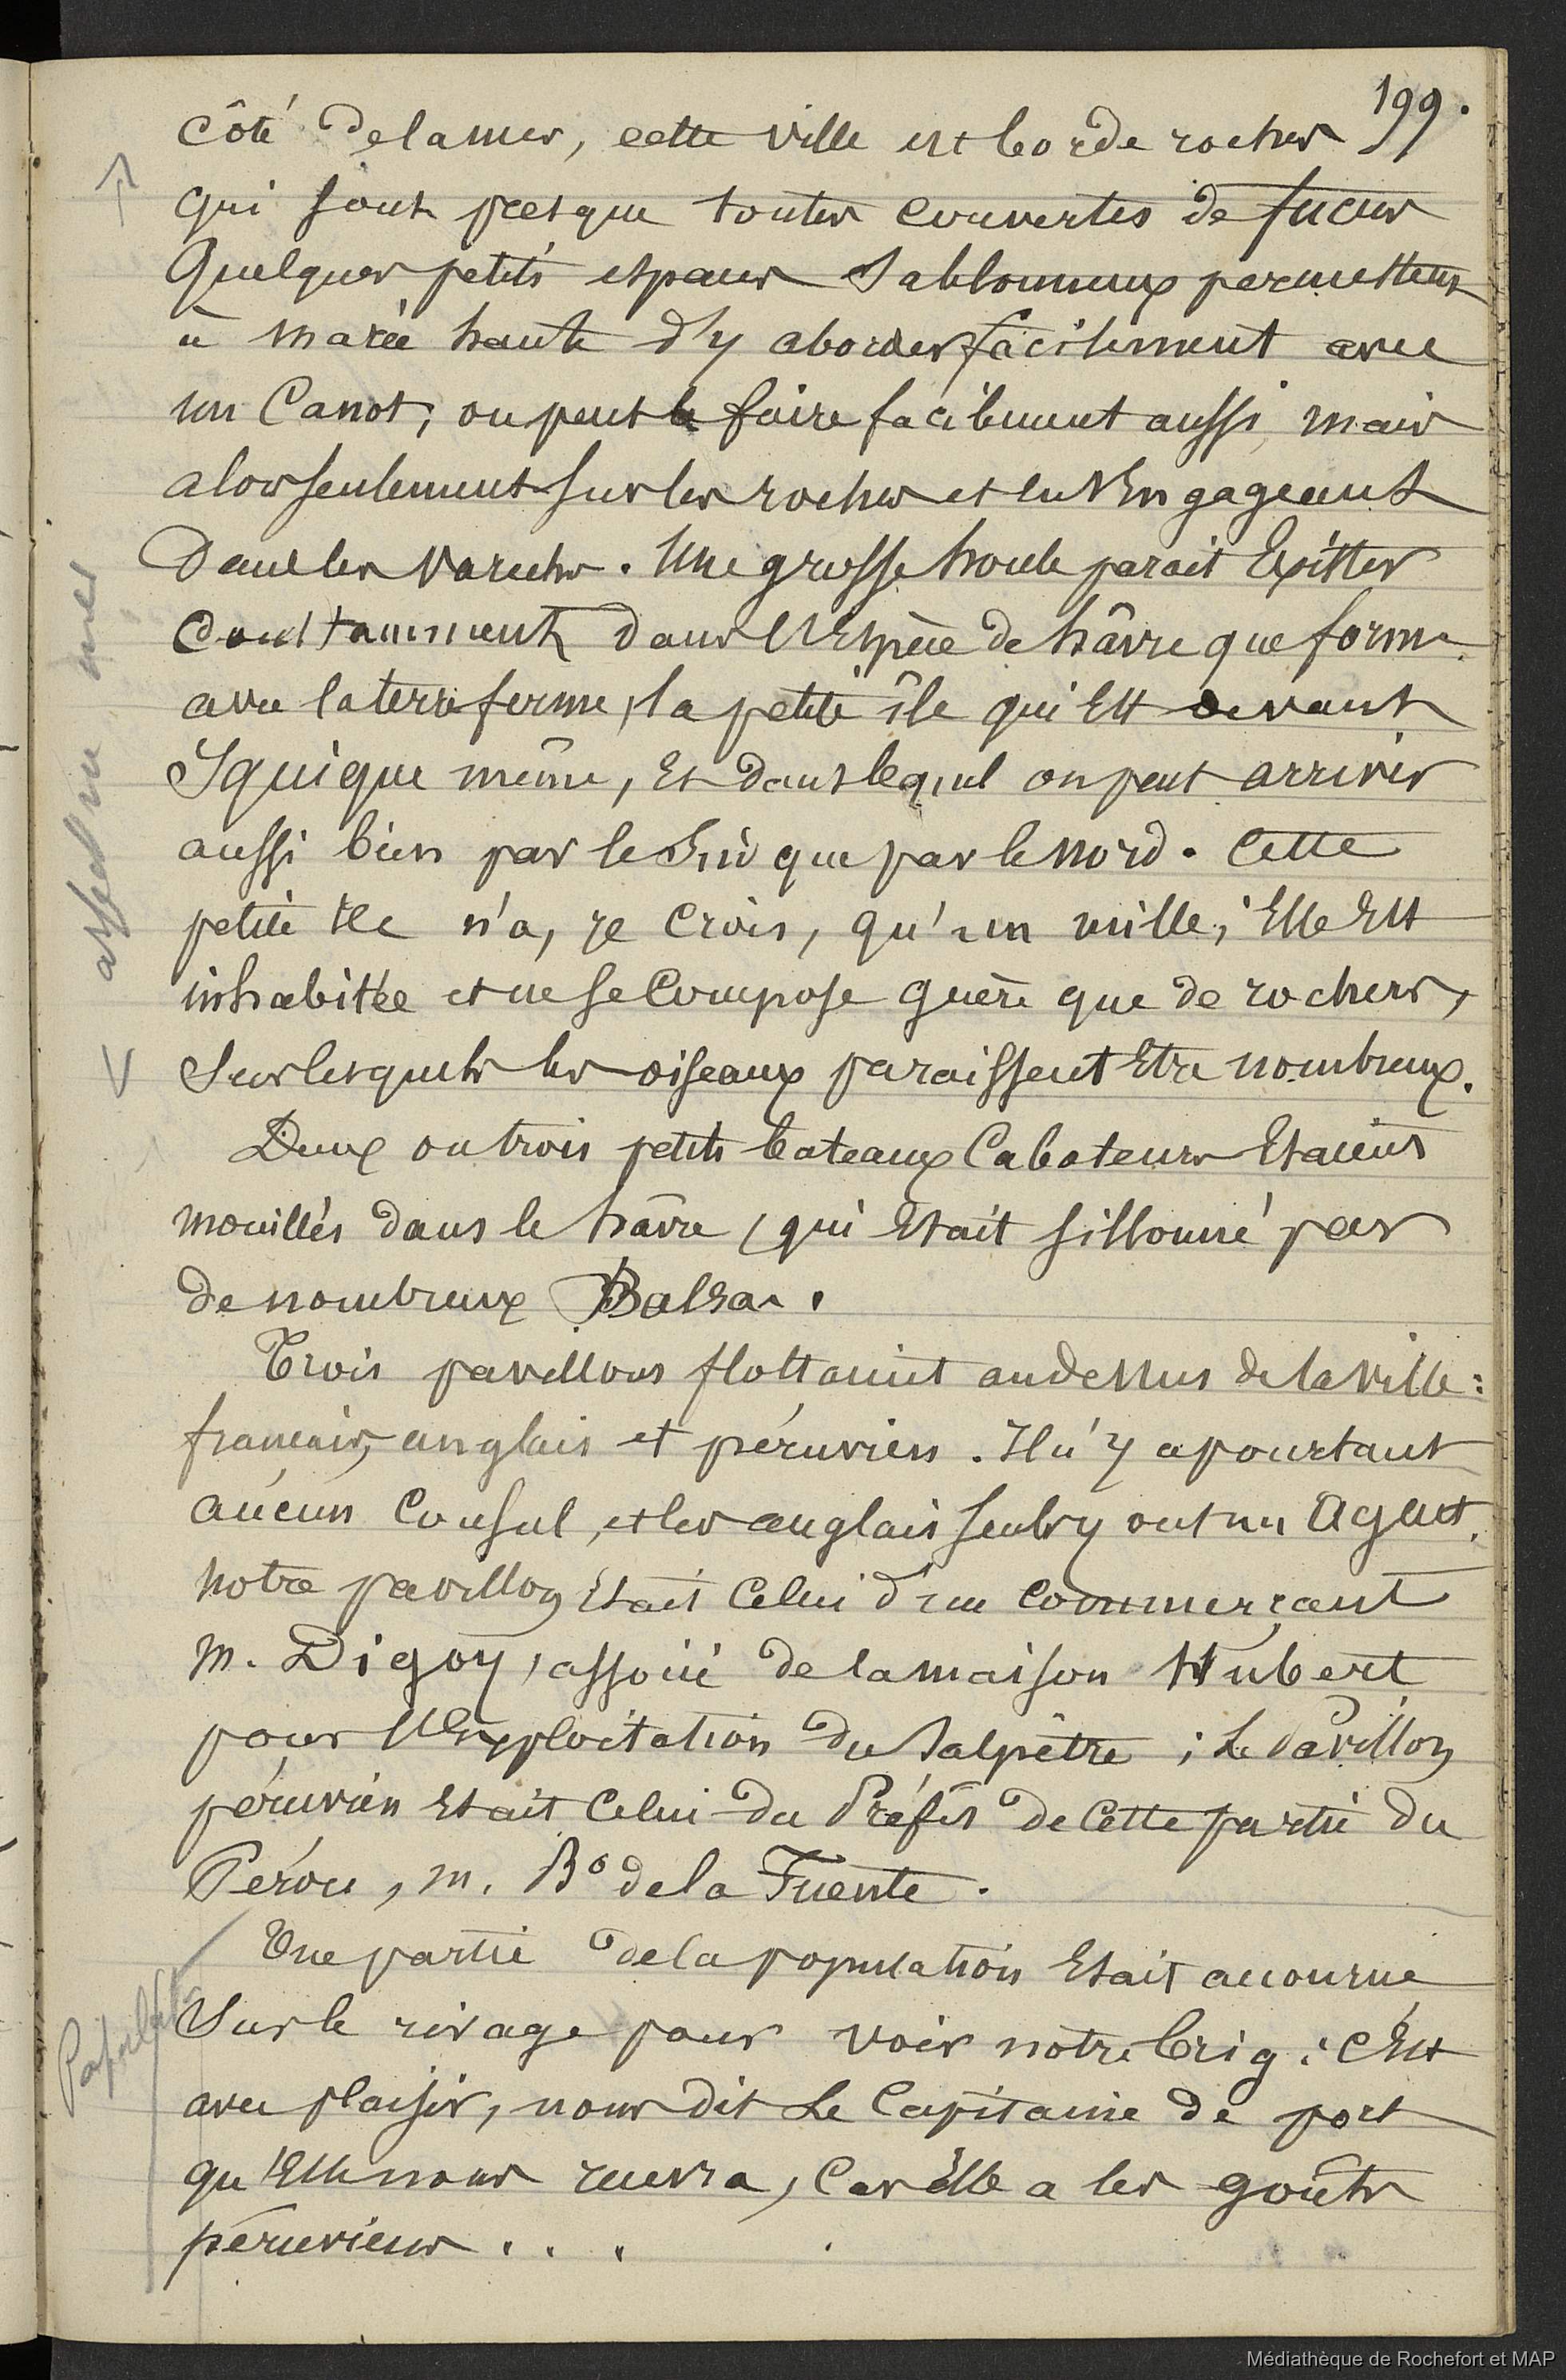 199.
côté de la mer, cette ville est bordé rochers
qui sont presque toutes couvertes de fucus
Quelques petits espaces sablonneux permettent
à marée haute d'y aborder facilement avec
un Canot; on peut le faire facilement aussi, mais
alors seulement sur les rochers et en s'engageant
dans les varechs. Une grosse houle parait Exister
constamment dans l'Espèce de hâvre que forme
avec la terre ferme, la petite île qui Est devant
Iquique même, Et dans lequel on peut arriver
aussi bien par le Sud que par le nord. Cette
petite île n'a, je crois, qu'un mille; Elle Est
inhabitée et ne se Compose guère que de rochers,
Sur lesquels les oiseaux paraissent Etre nombreux.
Deux ou trois petits bateaux Caboteurs Etaient
mouillés dans le hâvre, qui Etait sillonné par
de nombreux Balsas.
Trois pavillons flottaient au dessus de la ville:
français, anglais et péruvien. Il n'y a pourtant
aucun Consul, et les anglais seuls y ont un Agent.
Notre pavillon Etait Celui d'un Commerçant
M. Digoy, associé de la maison Hubert
pour l'Exploitation du Salpêtre; Le Pavillon
péruvien Etait Celui du Préfet de Cette partie du
Pérou, M. Bº de la Fuente.
Une partie de la population Etait accourue
Sur le rivage pour voir notre brig: C'Est
avec plaisir, nous dit Le Capitaine de port
qu'Elle nous recevra, Car Elle a les goûts
péruviens . . .
Médiathèque de Rochefort et MAP